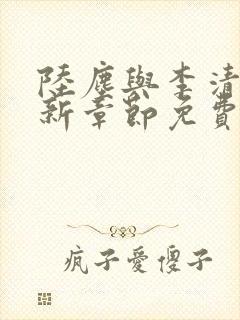 陸塵與李清
新章節免費
疯子愛傻子